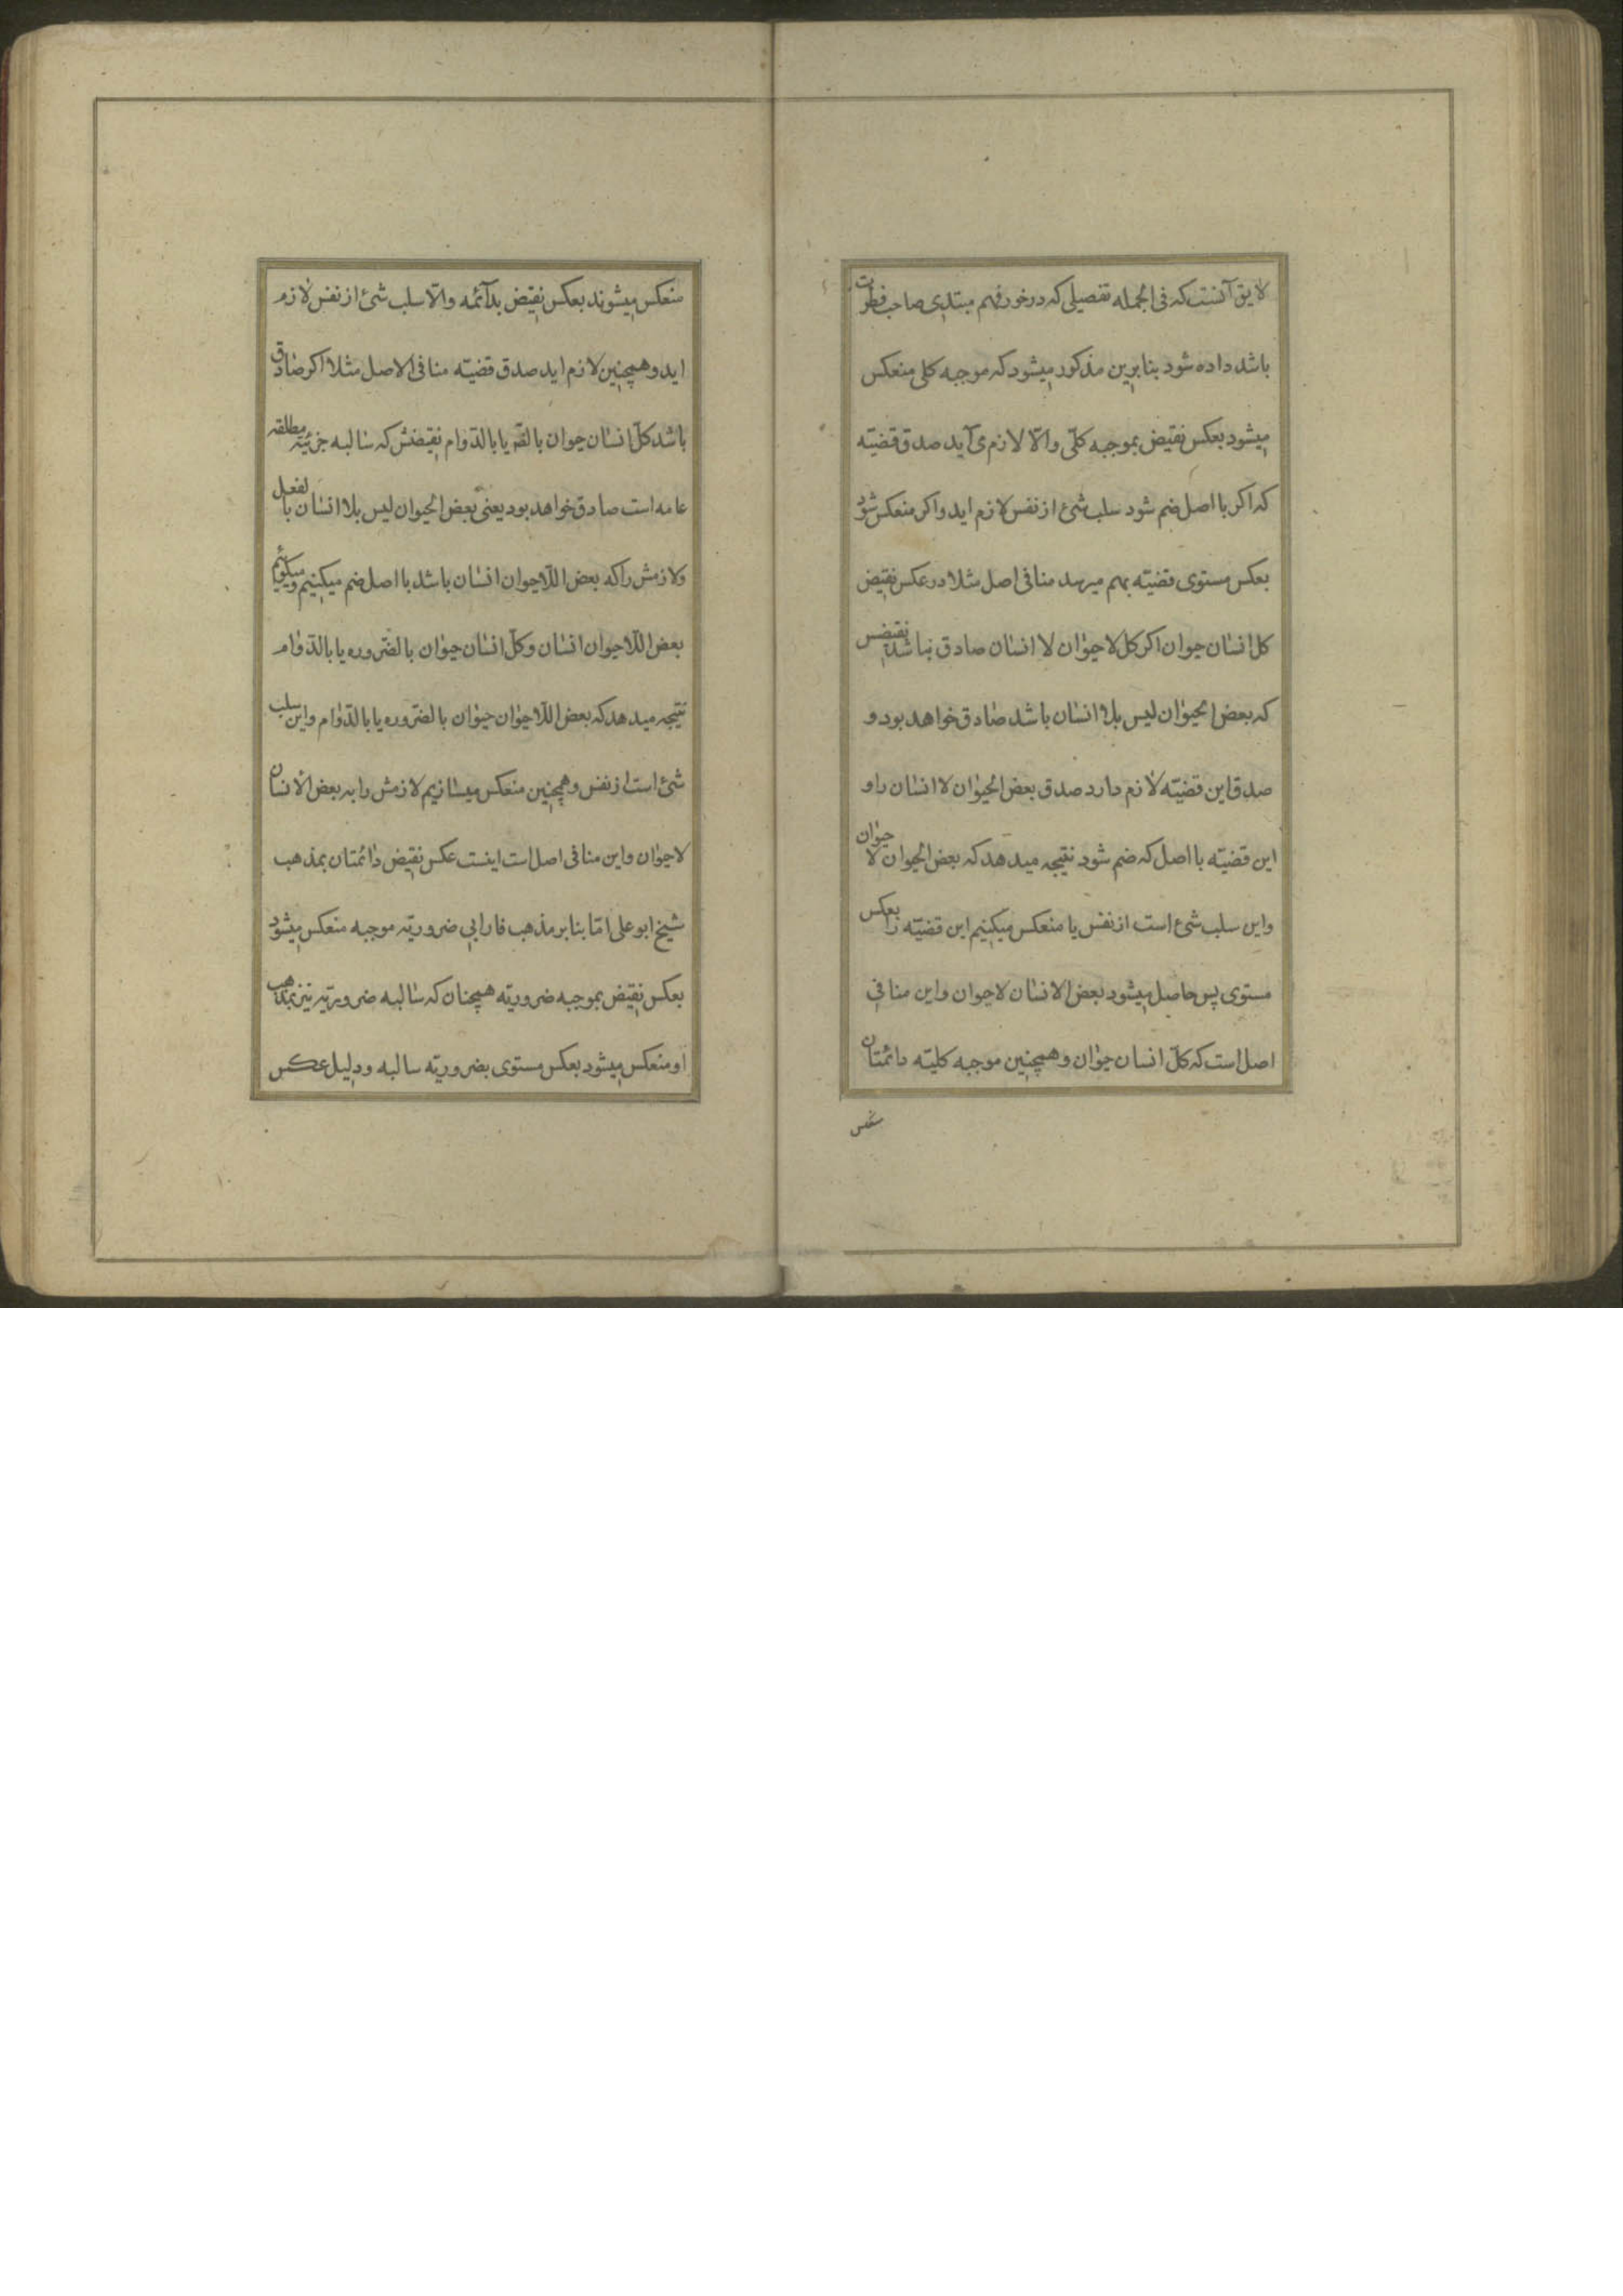 لایق آنست که فی الجمله تفصیلی که در خور فهم مبتدی صاحب فطرت
باشد داده شود بنابرین مذکور میشود که موجبه کلی منعکس
میشود بعکس نقیض بموجبه کلّی والّا لازم می آید صدق قضیّه
که اکر با اصل ضم شود سلب شئ از نفس لازم اید واکر منعکس شود
بعکس مستوی قضیّه بهم میرسد منافی اصل مثلا در عکس نقیض
کل انسان حیوان اکر کل لاحیوان لا انسان صادق نباشد نقیضس
که بعض الحیوان لیس بلا انسان باشد صادق خواهد بود و
صدق این قضیّه لازم دارد صدق بعض الحیوان لا انسان را و
این قضیّه با اصل که ضم شود نتیجه میدهد که بعض الحیوان لا حیوان
واین سلب شئ است از نفس یا منعکس میکنیم این قضیّه را بعکس
مستوی پس حاصل میشود بعض الانسان لاحیوان واین منافی
اصل است که کلّ انسان حیوان و همچنین موجبه کلیّه دائمتان
منعکس
منعکس میشوند بعکس نقیض بدآئمه والّا سلب شئ از نفس لازم
اید و همچنین لازم اید صدق قضیّه منافی الاصل مثلا اکر صادق
باشد کلّ انسان حیوان بالضّر یا بالدّوام نقیضش که سالبه جزئیّه مطلقه
عامه است صادق خواهد بود یعنی بعض الحیوان لیس بلا انسان بالفعل
ولازمش را که بعض اللّاحیوان انسان باشد با اصل ضم میکنیم ومیکوئیم
بعض اللّاحیوان انسان وکلّ انسان حیوان بالضّروره یا بالدّوام
نتیجه میدهد که بعض اللّاحیوان حیوان بالضّروره یا بالدّوام واین سلب
شئ است از نفس و همچنین منعکس میسازیم لازمش را به بعض الانسان
لاحیوان واین منافی اصل است اینست عکس نقیض دائمتان بمذهب
شیخ ابو علی امّا بنابر مذهب فارابی ضروریّه موجبه منعکس میشود
بعکس نقیض بموجبه ضروریّه همچنان که سالبه ضروریّه نیز بمذهب
او منعکس میشود بعکس مستوی بضروریّه سالبه ودلیل عکس